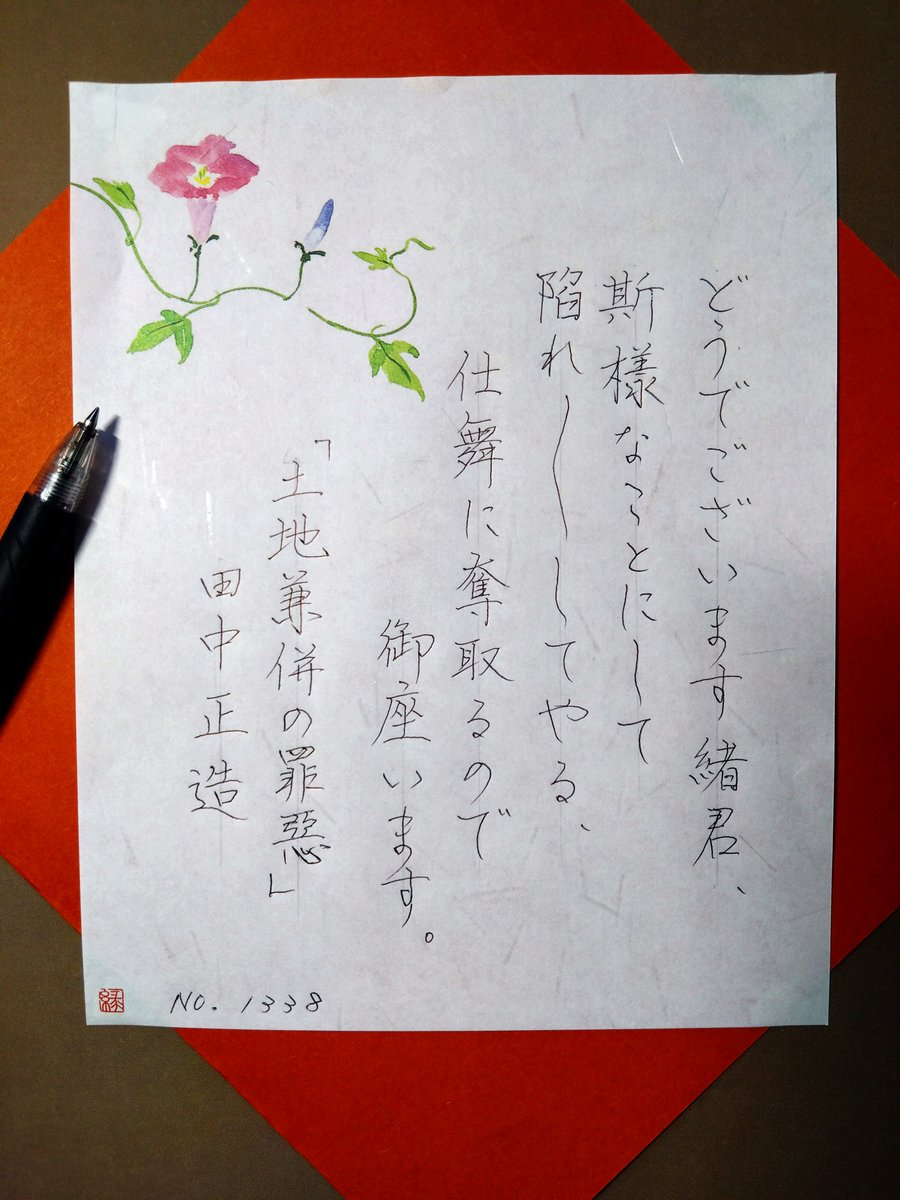 どうでございます緒君、
斯様なことにして
陥れ〳〵してやる、
仕舞に奪取るので
御座います。
「土地兼併の罪惡」
田中正造
NO. 1338
縁